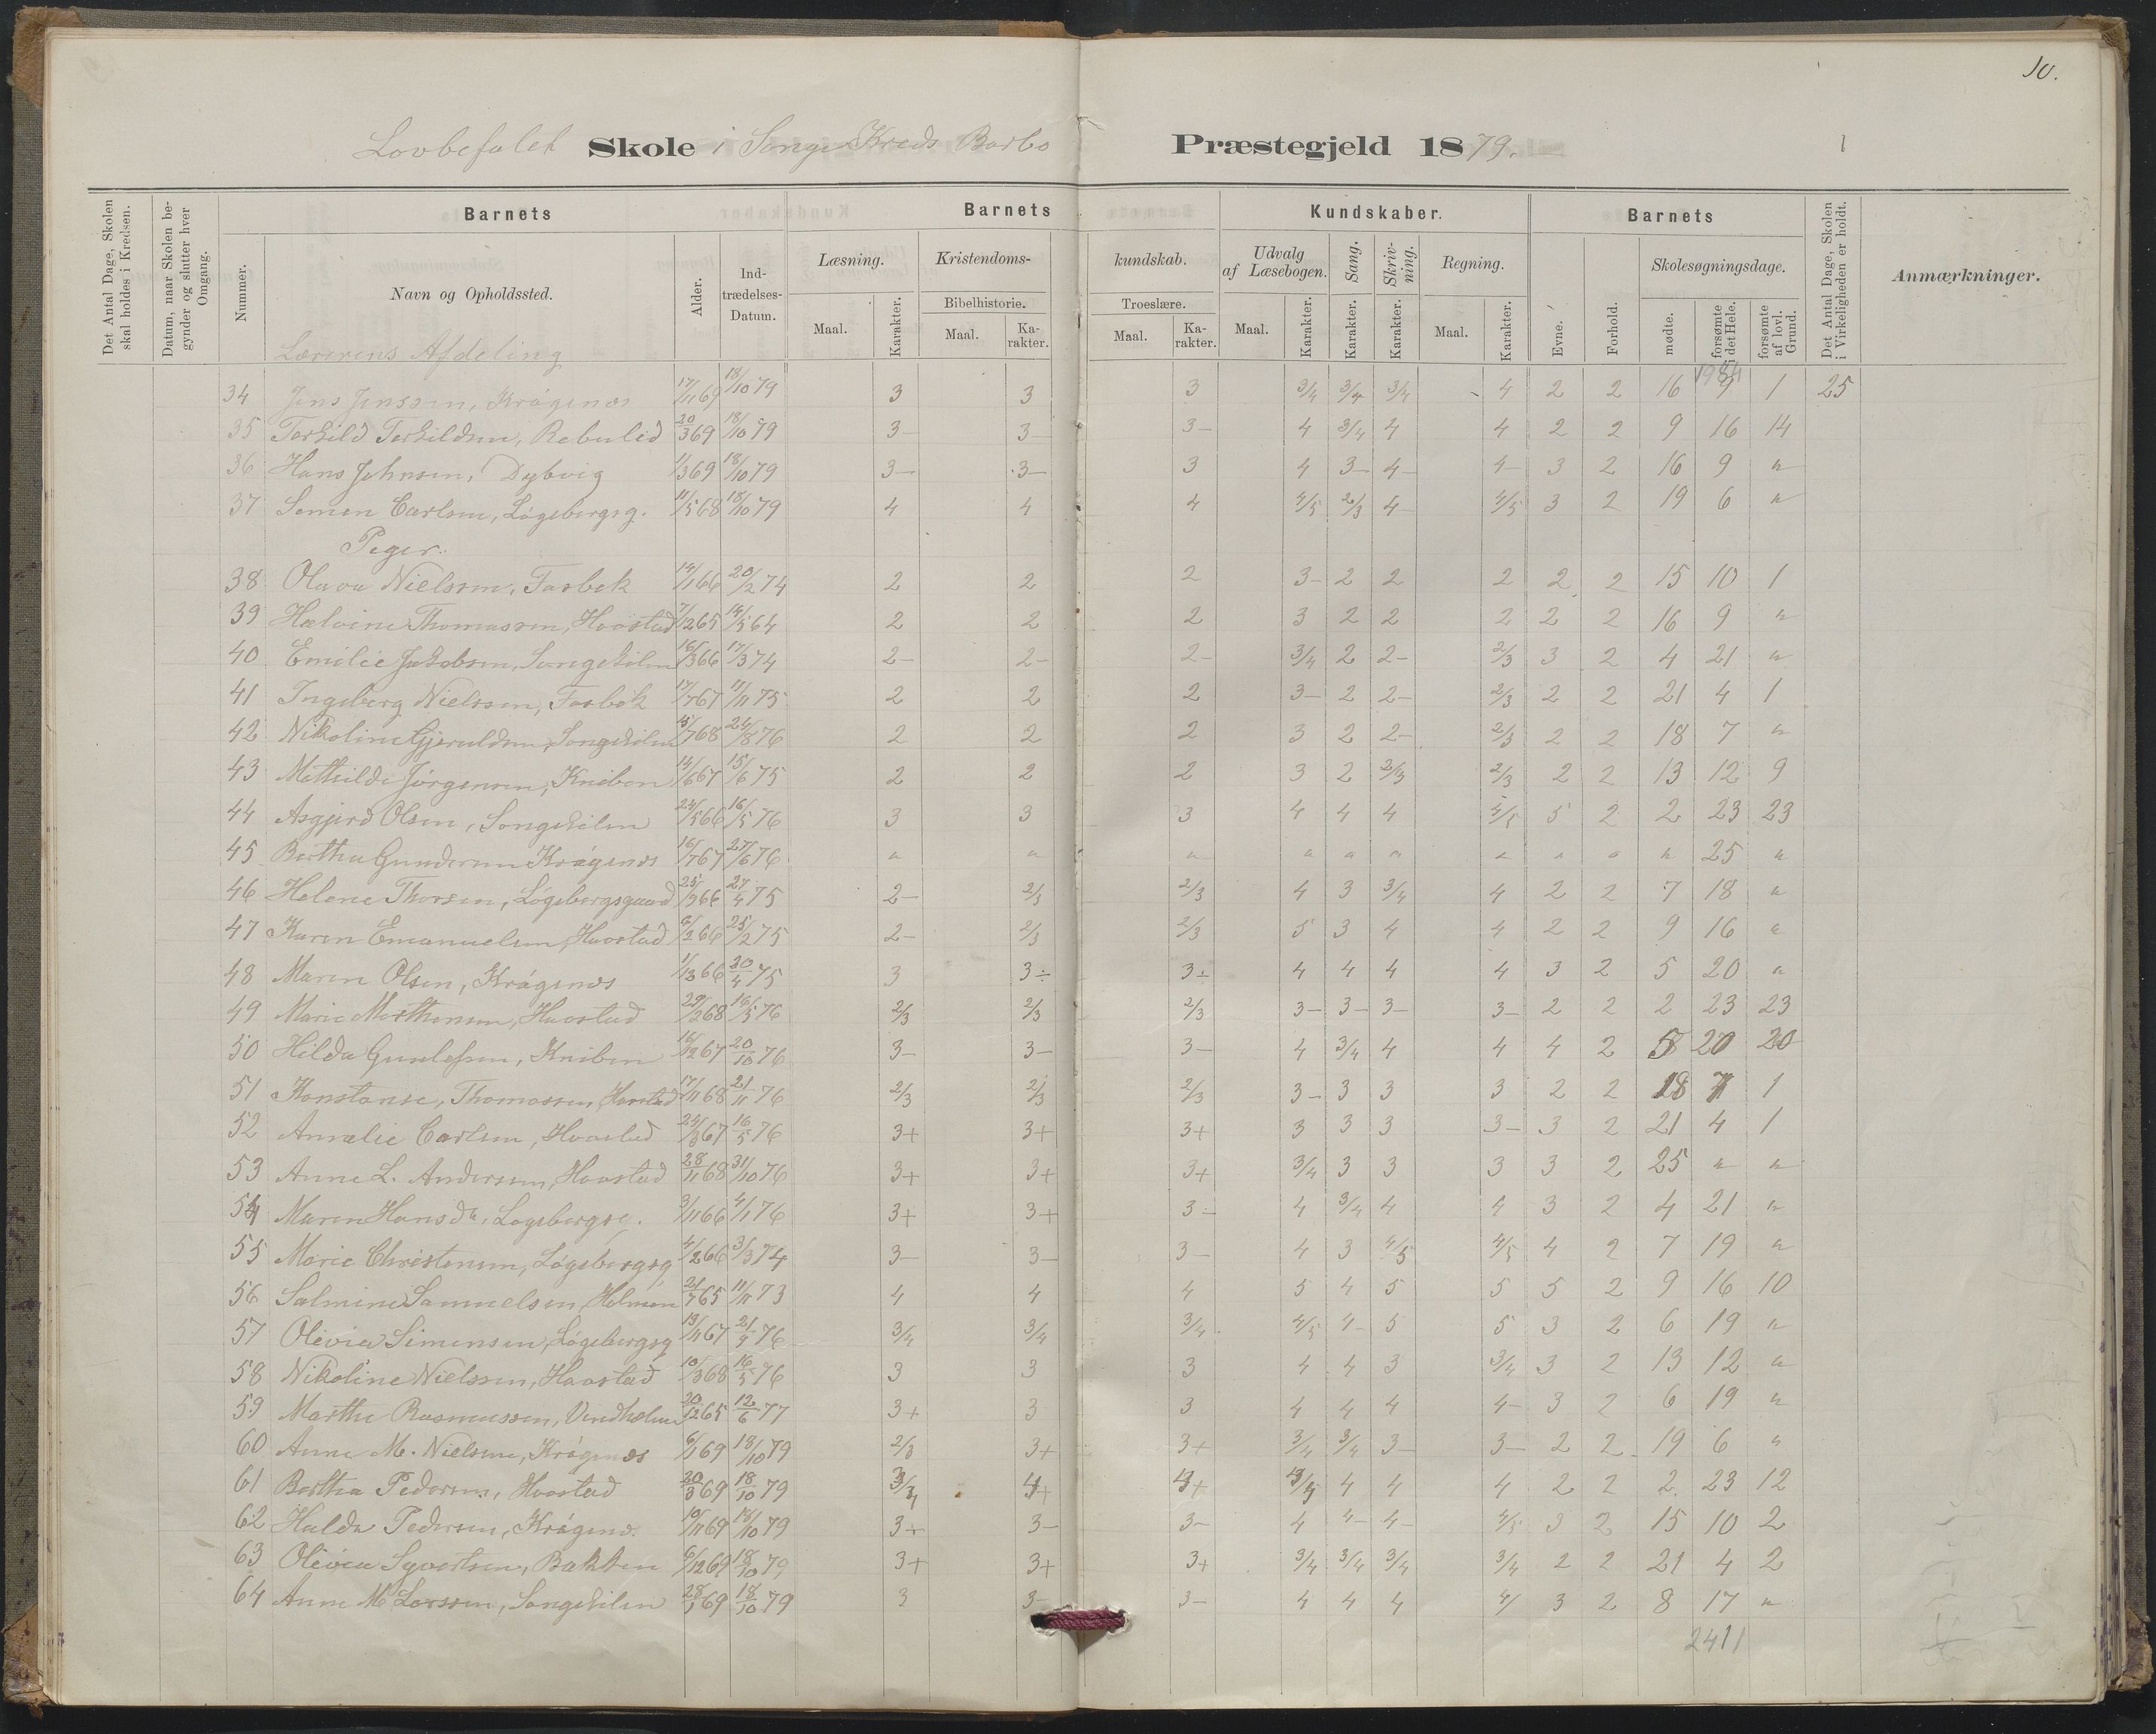 10.
Lovbefalet Skole i Songe Kreds Barbo Præstegjeld 1879.
Det Antal Dage, Skolen skal holdes i Kredsen.
Datum, naar Skolen begynder og slutter hver Omgang.
Barnets Barnets Kundskaber. Barnets
Nummer. Navn og Opholdssted. Alder. Indtrædelses-Datum. Læsning. Kristendoms- kundskab. Udvalg af Læsebogen. Sang. Skrivning. Regning. Evne. Forhold. Skolesøgningsdage. Det Antal Dage, Skolen i Virkeligheden er holdt. Anmærkninger.
Bibelhistorie. Troeslære.
Maal. Karakter. Maal. Karakter. Maal. Karakter. Maal. Karakter. Karakter. Karakter. Maal. Karakter. mødte. forsømte i det Hele. forsømte af lovl. Grund.
Lærerens Afdeling
34 Jens Jenssen, Krøgenæs 17/11 69 18/10 79 3 3 3 3/4 3/4 3/4 4 2 2 16 9 1 25
35 Terkild Terkildsen, 20/3 69 18/10 79 3- 3- 3- 4 3/4 4 4 2 2 9 16 14
36 Hans Johnsen, Dybvig 1/3 69 18/10 79 3- 3- 3 4 3- 4- 4- 3 2 16 9 "
37 Semen Carlsen, Løgebergsg. 11/5 68 18/10 79 4 4 4 4/5 2/3 4- 4/5 3 2 19 6 "
Piger.
38 Olava Nielssen, Fasbek 14/1 66 20/2 74 2 2 2 3- 2 2 2 2 2 15 10 1
39 Helvine Thomassen, Havstad 7/2 65 14/5 64 2 2 2 3 2 2 2 2 2 16 9 "
40 Emilie Jakobsen, Songekilen 16/3 66 17/3 74 2- 2- 2- 3/4 2 2- 2/3 3 2 4 21 "
41 Ingeberg Nielssen, Fasbek 17/7 67 11/11 75 2 2 2 3- 2 2- 2/3 2 2 21 4 1
42 Nikoline Gjeruldsen, Songekilen 5/7 68 24/8 76 2 2 2 3 2 2- 2/3 2 2 18 7 "
43 Mathilde Jørgensen, Kniben 14/6 67 15/6 75 2 2 2 3 2 2/3 2/3 2 2 13 12 9
44 Asgjerd Olsen, Songekilen 24/5 66 16/5 76 3 3 3 4 4 4 4/5 5 2 2 23 23
45 Bertha Gundersen Krøgenæs 16/7 67 27/6 76 " " " " " " " " " " 25 "
46 Helene Thorsen, Løgebergsgaard 25/9 66 27/4 75 2- 2/3 2/3 4 3 3/4 4 2 2 7 18 "
47 Karen Emanuelsen, Havstad 8/2 66 25/2 75 2- 2/3 2/3 5 3 4 4 2 2 9 16 "
48 Maren Olsen, Krøgenæs 66 30/4 75 3 3÷ 3÷ 4 4 4 4 3 2 5 20 "
49 Marie Mortensen, Havstad 29/2 68 16/5 76 2/3 2/3 2/3 3- 3- 3- 3- 2 2 2 23 23
50 Hilda Gunlefsen, Kniben 16/12 67 20/10 76 3- 3- 3- 4 3/4 4 4 4 2 5 20 20
51 Konstanse, Thomassen, Havstad 17/11 68 21/11 76 2/3 2/3 2/3 3- 3 3 3 2 2 18 7 1
52 Annelie Carlsen, Havstad 24/3 67 16/5 76 3+ 3+ 3+ 3 3 3 3- 3 2 21 4 1
53 Anne L. Andersen, Havstad 28/11 68 31/10 76 3+ 3+ 3+ 3/4 3 3 3 3 2 25 " "
54 Maren Hansdr, Løgebergsg. 3/11 66 4/1 76 3+ 3+ 3- 4 3/4 4 4 3 2 4 21 "
55 Marie Christensen, Løgebergsg 4/2 66 3/3 74 3- 3- 3- 4 3 4/5 4/5 4 2 7 19 "
56 Salmine Samuelsen, Holmen 21/7 65 11/11 73 4 4 4 5 4 5 5 5 2 9 16 10
57 Olevia Simensen, Løgebergsg 13/11 67 21/9 76 3/4 3/4 3/4 4/5 4- 5 5 3 2 6 19 "
58 Nikoline Nielssen, Havstad 10/3 68 16/5 76 3 3 3 4 4 3 3/4 3 2 13 12 "
59 Marthe Rasmussen, Vindholmen 20/12 65 12/6 77 3+ 3 3 4 4 4 4- 3 2 6 19 "
60 Anne M. Nielsen, Krøgenæs 6/1 69 18/10 79 2/3 3+ 3+ 3/4 3/4 3- 3- 2 2 19 6 "
61 Bertha Pedersen, Havstad 20/3 69 18/10 79 3/4 4 4 4 4 4 2 2 2 23 12
62 Hulda Pedersen, Krøgenæs 10/11 69 18/10 79 3+ 3- 3- 4 4- 4- 4/5 3 2 15 10 2
63 Olevia Syvertsen, Bakken 6/12 69 18/10 79 3+ 3+ 3+ 3/4 3/4 3/4 3/4 2 2 21 4 2
64 Anne M Larssen, Songekilen 28/1 69 18/10 79 3 3- 3- 4 4 4 4/ 3 2 8 17 "
2411